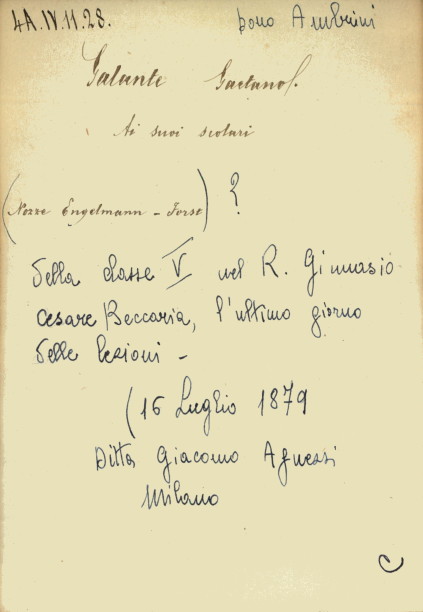 4A.IV.11.28.
dono Ambrini
Galante Gaetano.
Ai suoi scolari
(Nozze Engelmann - Forst) ?
della classe V nel R. Ginnasio
Cesare Beccaria, l'ultimo giorno
delle lezioni -
(16 Luglio 1879
Ditta Giacomo Agnessi
Milano
C